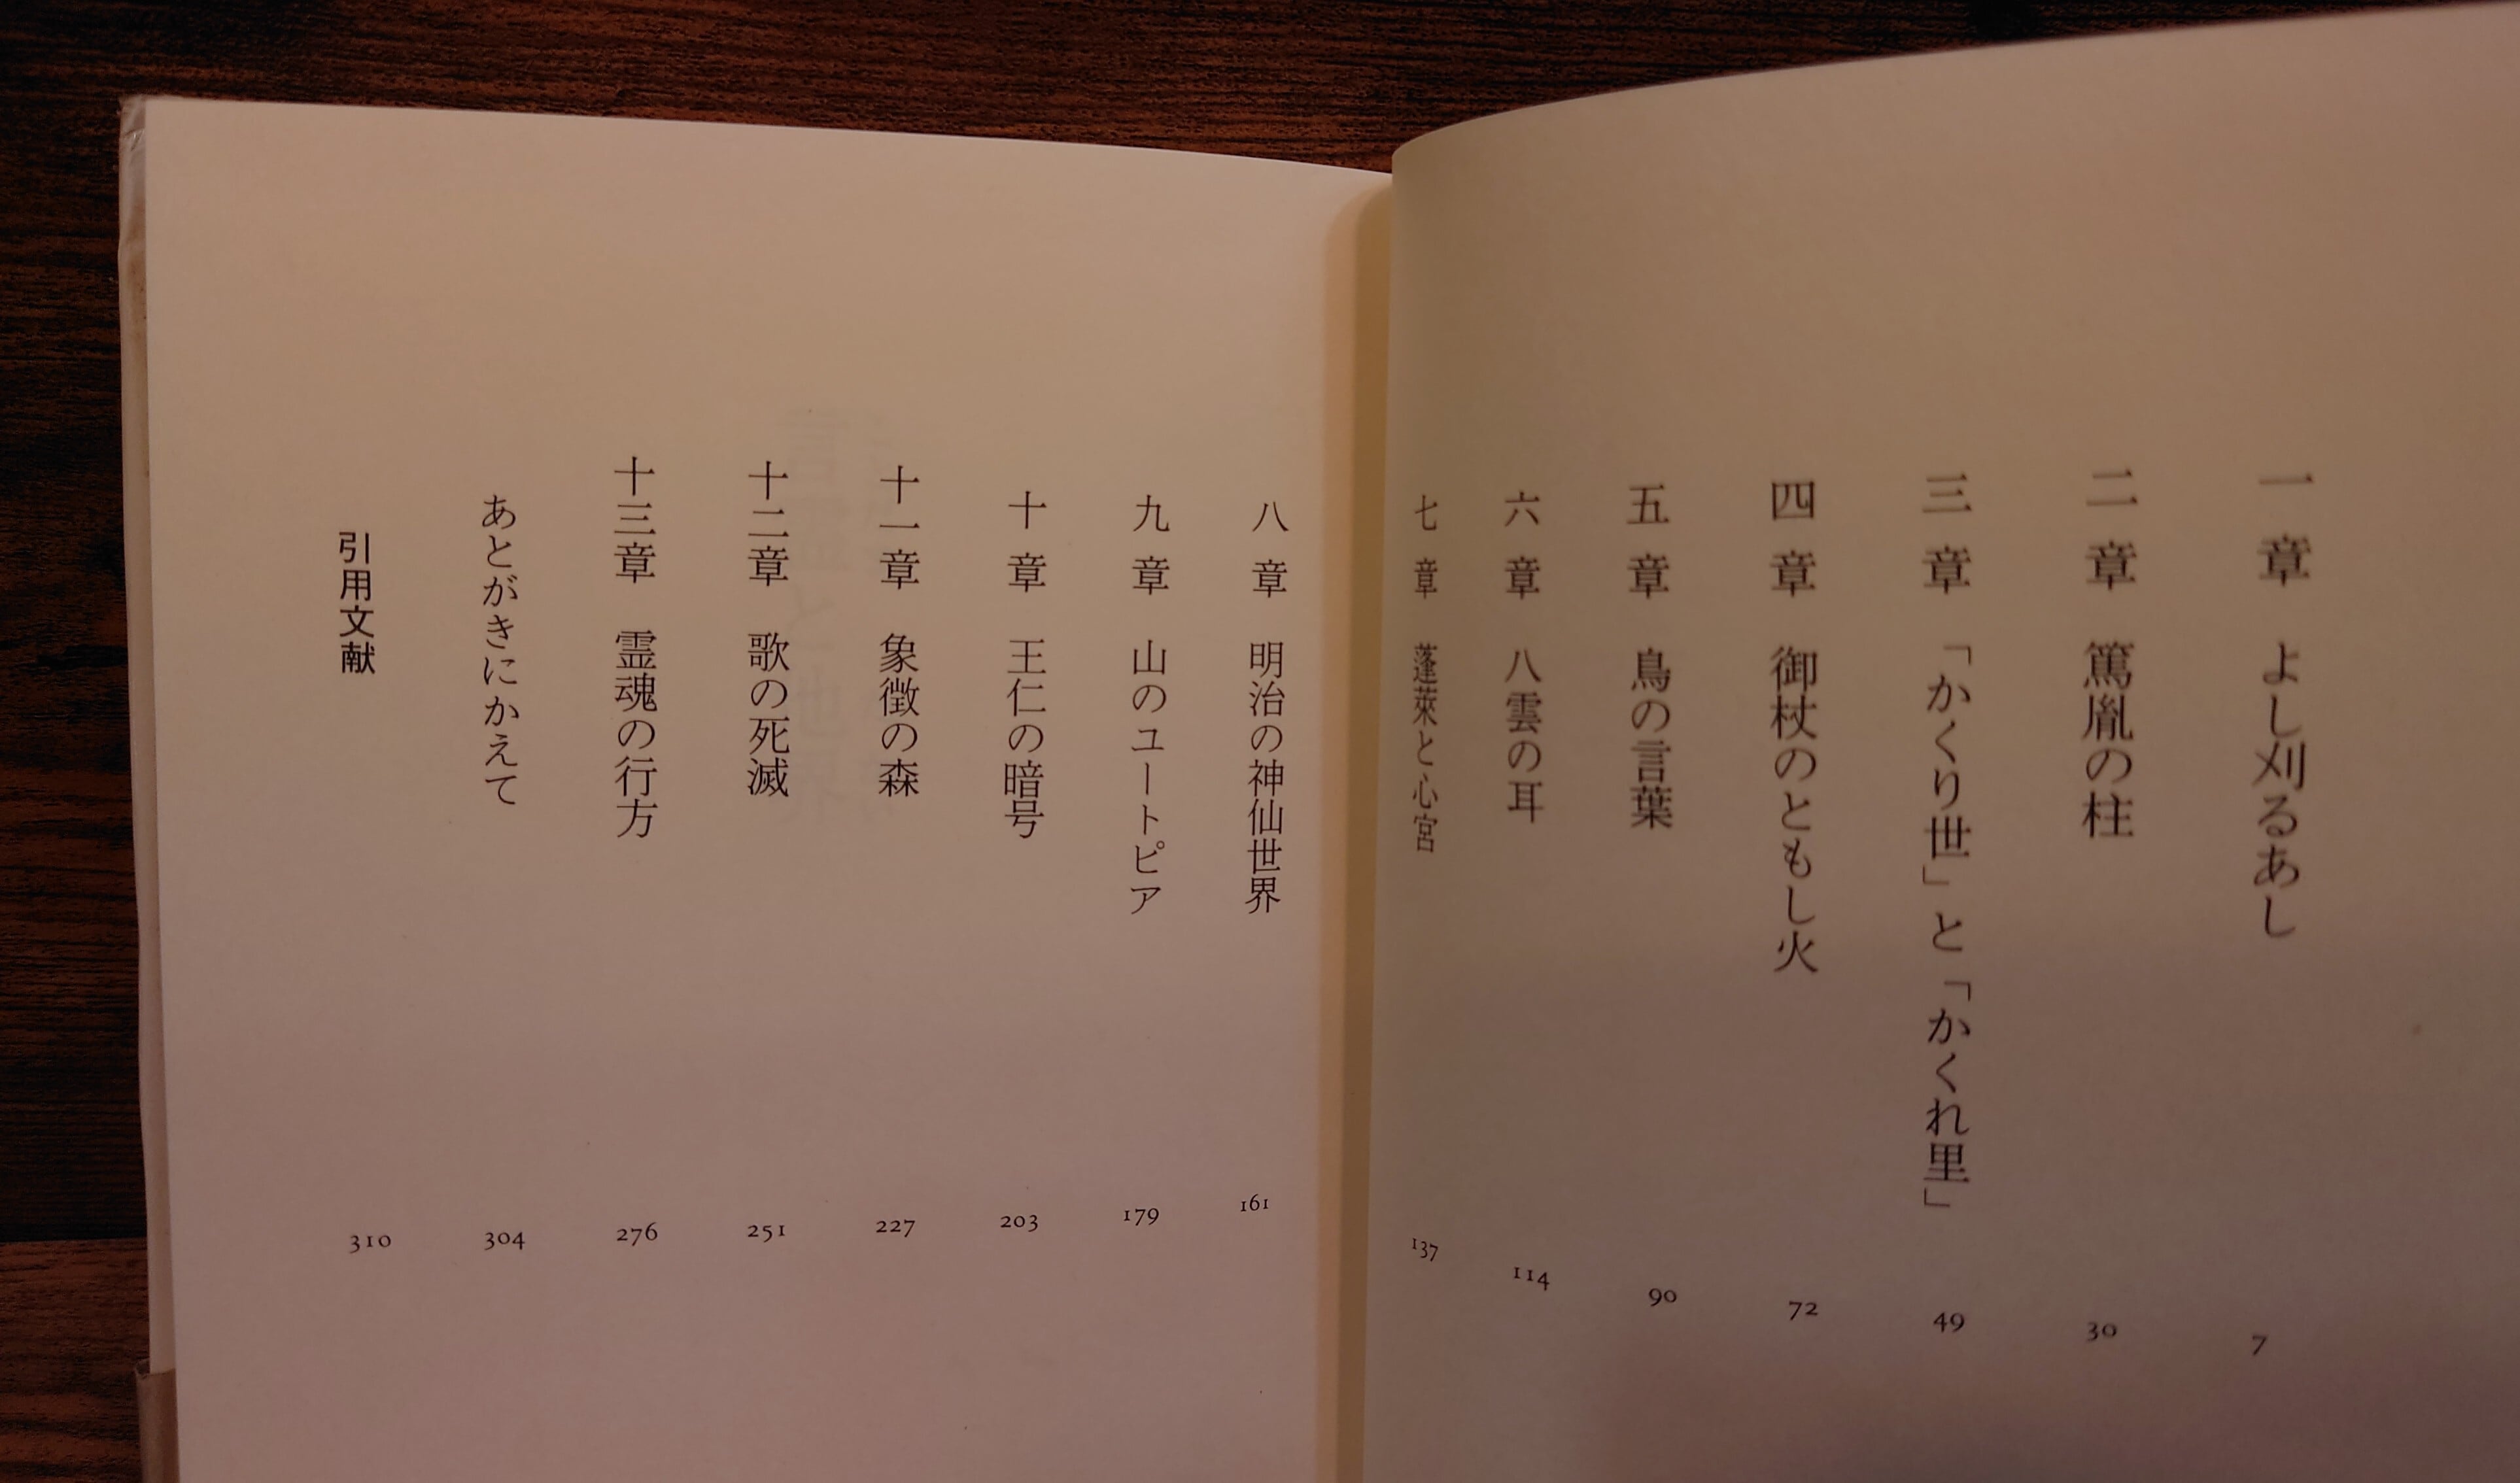 一章 よし刈るあし 7
二章 篤胤の柱 30
三章 「かくり世」と「かくれ里」 49
四章 御杖のともし火 72
五章 鳥の言葉 90
六章 八雲の耳 114
七章 蓬萊と心宮 137
八章 明治の神仙世界 161
九章 山のユートピア 179
十章 王仁の暗号 203
十一章 象徴の森 227
十二章 歌の死滅 251
十三章 霊魂の行方 276
あとがきにかえて 304
引用文献 310